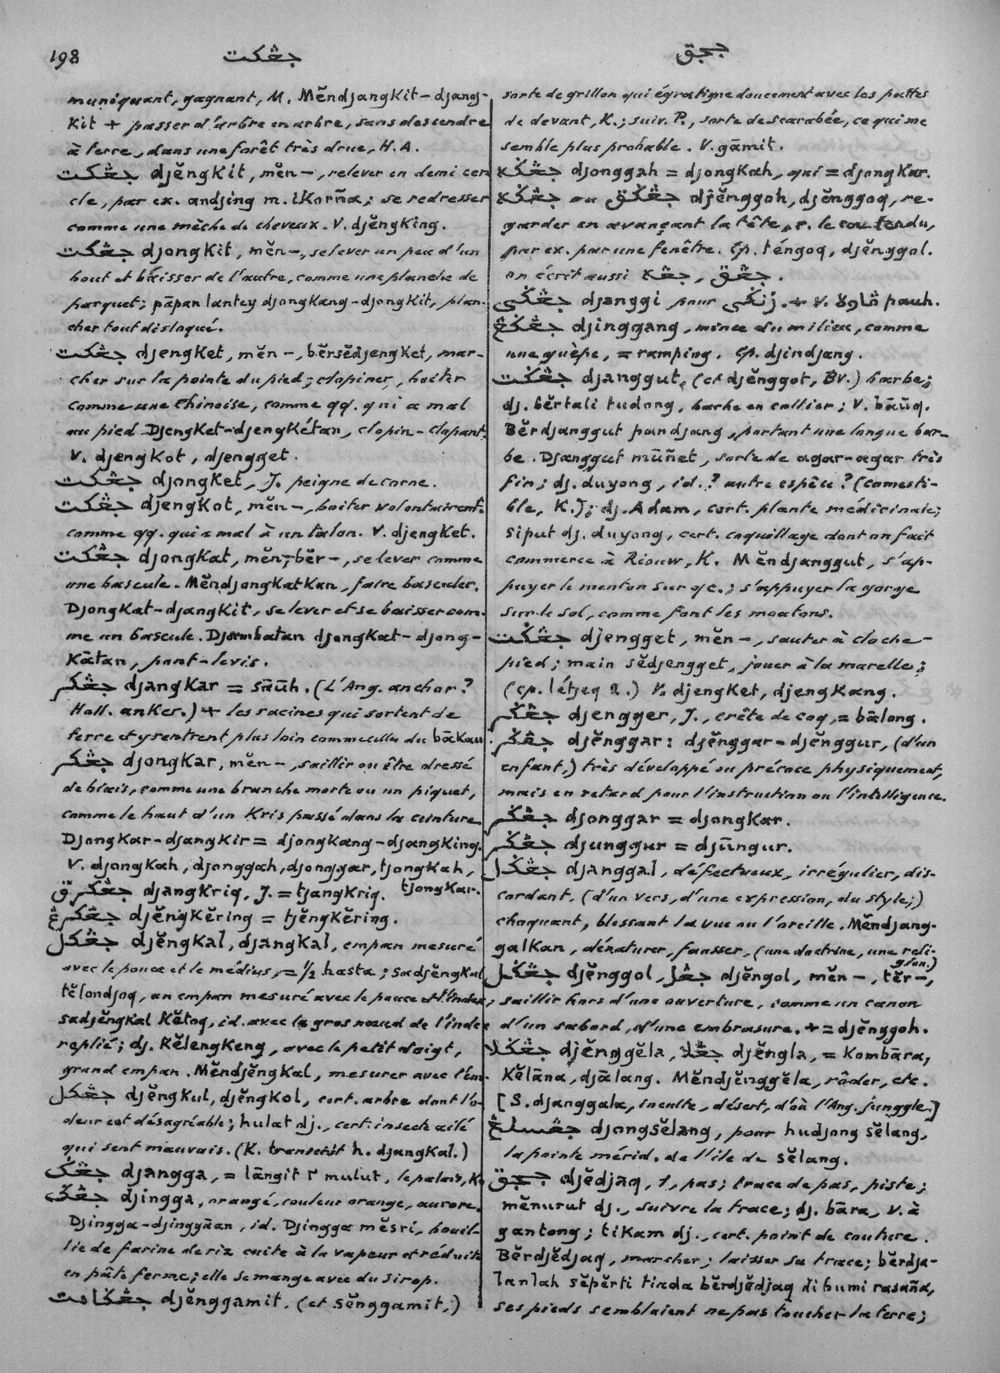 198
جڠكت
ججق
muniquant, gagnant, M. Mĕndjangkit-djang-
kit + passer d'arbre en arbre, sans descendre
à terre, dans une forêt très drue, H.A.
جڠكت djĕngkit, mĕn-, relever en demi cer
cle, par ex. andjing m. ikorña; se redresser
comme une mèche de cheveux. V. djĕngking.
جڠكت djongkit, mĕn-, se lever un peu d'un
bout et baisser de l'autre, comme une planche de
parquet; pāpan lantey djongkang-djongkit, plan-
cher tout disloqué.
جڠكت djengket, mĕn-, bĕrsĕdjengket, mar-
cher sur la pointe du pied; clopiner, boiter
comme une Chinoise, comme qq. qui a mal
au pied. Djengket-djengkétan, clopin-clopant.
V. djengkot, djengget.
جڠكت djongket, J. peigne de corne.
جڠكت djengkot, mĕn-, boiter volontairent
comme qq. qui a mal à un talon. V. djengket.
جڠكت djongkat, mĕn-, bĕr-, se lever comme
une bascule. Mĕndjongkatkan, faire basculer.
Djongkat-djangkit, se lever et se baisser com-
me un bascule. Djambatan djongkat-djong-
kātan, pont-levis.
جڠكر djangkar = sāūh. (L'Ang. anchor?
Holl. anker.) + les racines qui sortent de
terre et y rentrent plus loin comme celles du bākau
جڠكر djongkar, mĕn-, saillir ou être dressé
de biais, comme une branche morte ou un piquet,
comme le haut d'un Kris passé dans la ceinture.
Djongkar-djangkir = djongkang-djangking.
V. djongkah, djonggah, djonggar, tjongkah,
tjongkar.
جڠكرق djangkriq, J. = tjangkriq.
جڠكرڠ djĕngkĕring = tjĕngkĕring.
جڠكل djĕngkal, djangkal, empan mesuré
avec le pouce et le médius, = ½ hasta; sadjĕngkal
tĕlondjoq, un empan mesuré avec le pouce et l'index,
sadjĕngkal kĕtoq, id. avec le gros nœud de l'index
replié; dj. kĕlengkeng, avec le petit doigt,
grand empan. Mĕndjĕngkal, mesurer avec l'em-
جڠكل djĕngkul, djĕngkol, cert. arbre dont l'o-
deur est désagréable; hulat dj., cert. insecte ailé
qui sent mauvais. (K. transcrit h. djangkal.)
جڠݢ djangga, = lāngit ٢ mulut, le palais, K.
جڠݢ djingga, orangé, couleur orange, aurore.
Djingga-djinggāan, id. Djingga mĕsri, bouil-
lie de farine de riz cuite à la vapeur et réduite
en pâte ferme; elle se mange avec du sirop.
جڠݢامت djĕnggamit, (et sĕnggamit,)
sorte de grillon qui égratigne doucement avec les pattes
de devant, K.; suiv. P., sorte de scarabée, ce qui me
semble plus probable. V. gāmit.
جڠݢه djonggah = djongkah, qui = djongkar.
جڠݢه ou جڠݢق djĕnggoh, djĕnggoq, re-
garder en avançant la tête, r. le cou tendu,
par ex. par une fenêtre. Cp. téngoq, djĕnggol.
on écrit aussi جڠكه, جڠق.
جڠݢي djanggi pour زنݢي. + V. ڤاوه pauh.
جڠݢڠ djinggang, mince du milieu, comme
une guêpe, = ramping. Cp. djindjang.
جڠݢت djanggut, (et djĕnggot, BV.) barbe;
dj. bĕrtali tudong, barbe en collier; V. bāūq.
Bĕrdjanggut pandjang, portant une longue bar-
be. Djanggut mūñet, sorte de agar-agar très
fin; dj. duyong, id.? autre espèce? (Comesti-
ble, K.); dj. Adam, cert. plante médicinale;
siput dj. duyong, cert. coquillage dont on fait
commerce à Riouw, K. Mĕndjanggut, s'ap-
puyer le menton sur qc.; s'appuyer la gorge
sur le sol, comme font les moutons.
جڠݢت djengget, mĕn-, sauter à cloche-
pied; main sĕdjengget, jouer à la marelle;
(cp. létjeq 2.) V. djengket, djengkang.
جڠݢر djengger, J., crête de coq, = bālong.
جڠݢر djĕnggar: djĕnggar-djĕnggur, (d'un
enfant,) très développé ou précoce physiquement,
mais en retard pour l'instruction ou l'intelligence.
جڠݢر djonggar = djongkar.
جڠݢر djunggur = djūngur.
جڠݢل djanggal, défectueux, irrégulier, dis-
cordant. (d'un vers, d'une expression, du style;)
choquant, blessant la vue ou l'oreille. Mĕndjang-
galkan, dénaturer, fausser, (une doctrine, une reli-
gion.)
جڠݢل djĕnggol, جڠل djĕngol, mĕn-, tĕr-,
saillir hors d'une ouverture, comme un canon
d'un sabord, d'une embrasure. + = djĕnggoh.
جڠݢلا djĕnggĕla, جڠلا djĕngla, = kombāra,
kĕlāna, djālang. Mĕndjĕnggĕla, rôder, etc.
[S. djanggala, inculte, désert, d'où l'Ang. junggle.]
جڠسلڠ djongsĕlang, pour hudjong sĕlang,
la pointe mérid. de l'île de sĕlang.
ججق djĕdjaq, 1, pas; trace de pas, piste;
mĕnurut dj., suivre la trace; dj. bāra, V. à
gantong; tikam dj., cert. point de couture.
Bĕrdjĕdjaq, marcher; laisser sa trace; bĕrdja-
lanlah sĕpĕrti tiada bĕrdjĕdjaq di bumi rasaña,
ses pieds semblaient ne pas toucher la terre;